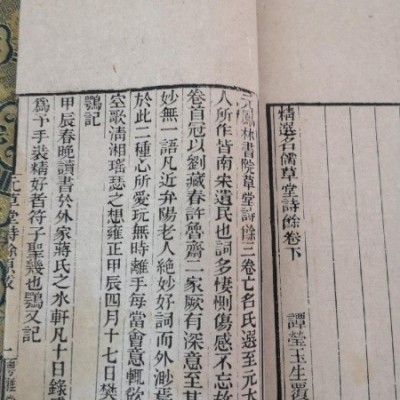 精選名儒草堂詩餘卷下
譚瑩玉生覆
元鳳林書院草堂詩餘三卷亡名氏選至元大
人所作皆南宋遺民也詞多悽惻傷感不忘故
卷首冠以劉藏春許魯齋二家厥有深意至其
妙無一語凡近弁陽老人絕妙好詞而外渺焉
於此二種心所愛玩無時離手每當會意輒欲
空歌清湘瑤瑟之想雍正甲辰四月十七日樊
鶚記
甲辰春晚讀書於外家蔣氏之水軒凡十日錄
為予手裝精好者符子聖幾也鶚又記
元草堂詩餘 跋 一 粵雅